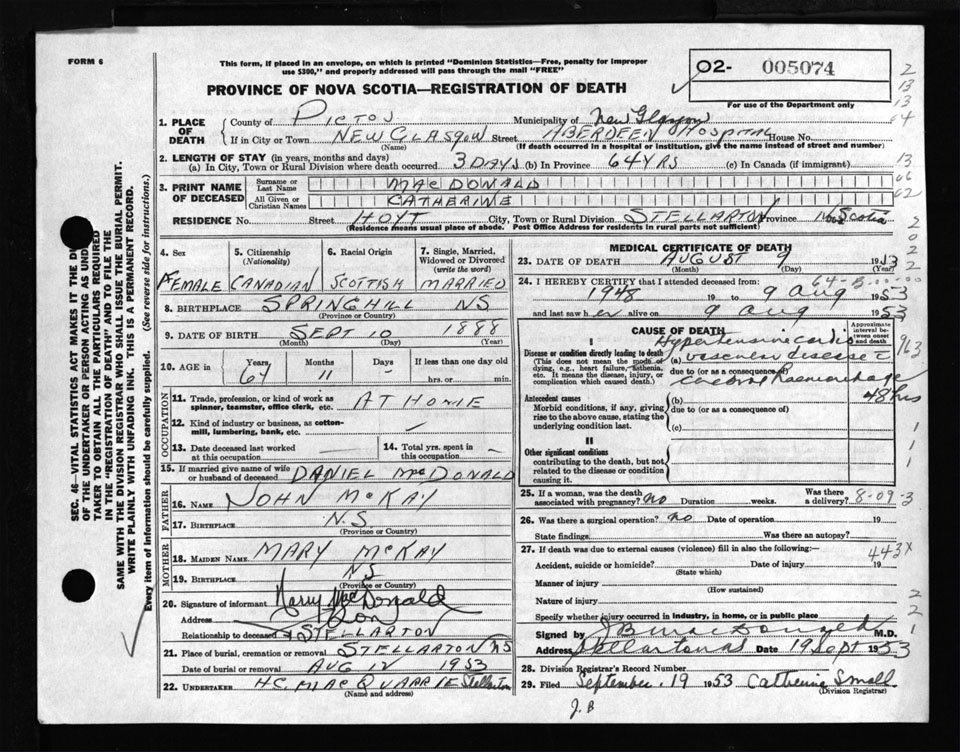 FORM 6
This form, if placed in an envelope, on which is printed "Dominion Statistics—Free, penalty for improper
use $300," and properly addressed will pass through the mail "FREE"
02- 005074
For use of the Department only
PROVINCE OF NOVA SCOTIA—REGISTRATION OF DEATH
1. PLACE OF DEATH
County of PICTOU Municipality of New Glasgow
If in City or Town NEW GLASGOW Street ABERDEEN HOSPITAL House No.
(Name) (If death occurred in a hospital or institution, give the name instead of street and number)
2. LENGTH OF STAY (in years, months and days)
(a) In City, Town or Rural Division where death occurred 3 DAYS (b) In Province 64 YRS (c) In Canada (if immigrant)
3. PRINT NAME OF DECEASED
Surname or Last Name MACDONALD
All Given or Christian Names CATHERINE
RESIDENCE No. Street HOYT City, Town or Rural Division STELLARTON Province N. Scotia
(Residence means usual place of abode. Post Office Address for residents in rural parts not sufficient)
4. Sex
FEMALE
5. Citizenship (Nationality)
CANADIAN
6. Racial Origin
SCOTTISH
7. Single, Married, Widowed or Divorced (write the word)
MARRIED
8. BIRTHPLACE SPRINGHILL NS
(Province or Country)
9. DATE OF BIRTH SEPT 10 1888
(Month) (Day) (Year)
10. AGE in Years 64 Months 11 Days - If less than one day old
hrs. or min.
OCCUPATION
11. Trade, profession, or kind of work as
spinner, teamster, office clerk, etc. AT HOME
12. Kind of industry or business, as cotton-
mill, lumbering, bank, etc. —
13. Date deceased last worked
at this occupation —
14. Total yrs. spent in
this occupation —
15. If married give name of wife
or husband of deceased DANIEL MCDONALD
FATHER
16. NAME JOHN MCKAY
17. BIRTHPLACE N.S.
(Province or Country)
MOTHER
18. MAIDEN NAME MARY MCKAY
19. BIRTHPLACE NS
(Province or Country)
20. Signature of informant Harry MacDonald
Address Son
Relationship to deceased STELLARTON
21. Place of burial, cremation or removal STELLARTON NS
Date of burial or removal AUG 12 1953
22. UNDERTAKER H.C. MACQUARRIE Stellarton
(Name and address)
MEDICAL CERTIFICATE OF DEATH
23. DATE OF DEATH AUGUST 9 1953
(Month) (Day) (Year)
24. I HEREBY CERTIFY that I attended deceased from:
1948 19 to 9 aug 1953
and last saw her alive on 9 aug 1953
CAUSE OF DEATH
Approximate interval between onset and death
I
Disease or condition directly leading to death
(This does not mean the mode of
dying, e.g., heart failure, asthenia,
etc. It means the disease, injury, or
complication which caused death.)
Hypertensive cardio
(a) vascular disease
due to (or as a consequence of)
cerebral haemorrhage
48 hrs
Antecedent causes
Morbid conditions, if any, giving
rise to the above cause, stating the
underlying condition last.
(b)
due to (or as a consequence of)
(c)
II
Other significant conditions
contributing to the death, but not
related to the disease or condition
causing it.
25. If a woman, was the death
associated with pregnancy? no Duration weeks. Was there
a delivery? 8-09-3
26. Was there a surgical operation? no Date of operation 19
State findings Was there an autopsy?
27. If death was due to external causes (violence) fill in also the following: 443X
Accident, suicide or homicide? Date of injury 19
(State which)
Manner of injury
(How sustained)
Nature of injury
Specify whether injury occurred in industry, in home, or in public place
Signed by J B MacDonald M.D.
Address Stellarton NS Date 19 Sept 1953
28. Division Registrar's Record Number
29. Filed September 19 1953 Catherine Small
(Division Registrar)
J.B
SEC. 46—VITAL STATISTICS ACT MAKES IT THE DU
OF THE UNDERTAKER OR PERSON ACTING AS UND
TAKER TO OBTAIN ALL THE PARTICULARS REQUIRED
IN THE "REGISTRATION OF DEATH" AND TO FILE THE
SAME WITH THE DIVISION REGISTRAR WHO SHALL ISSUE THE BURIAL PERMIT.
WRITE PLAINLY WITH UNFADING INK. THIS IS A PERMANENT RECORD.
Every item of information should be carefully supplied. (See reverse side for instructions.)